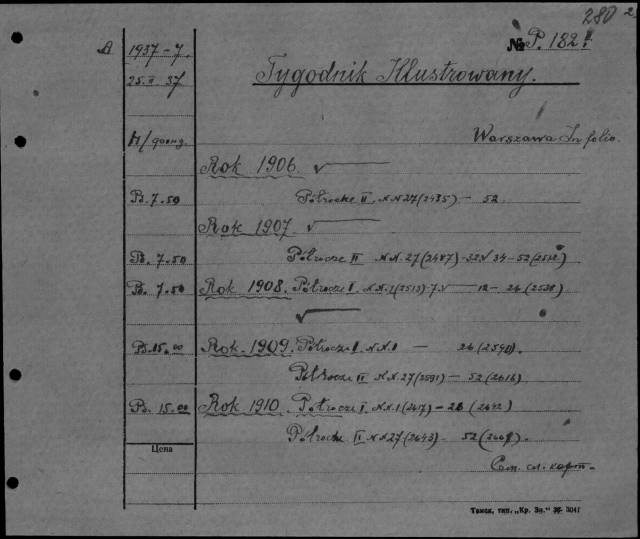 280
А 1937-7. № P. 182
25.II 37 Tygodnik Illustrowany.
Н/фонд. Warszawa In folio.
Rok 1906. √
Рб. 7.50 Półrocze II N.N 27(2435) - 52.
Rok 1907. √
Рб. 7.50 Półrocze II N.N. 27(2487)-32√ 34-52(2512)
Рб. 7.50 Rok 1908. Półrocze I. N.N.1(2513)-7.√ 12-26(2538)
√
Рб. 15.00 Rok 1909. Półrocze I. N.N.1 — 26(2590).
Półrocze II N.N.27(2591) — 52(2616)
Рб. 15.00 Rok 1910. Półrocze I. N.N.1(2617) - 26 (2642)
Półrocze II N.N 27(2643) - 52(2668).
Цена
См. сл. карт.
Томск, тип. „Кр. Зн." 3041